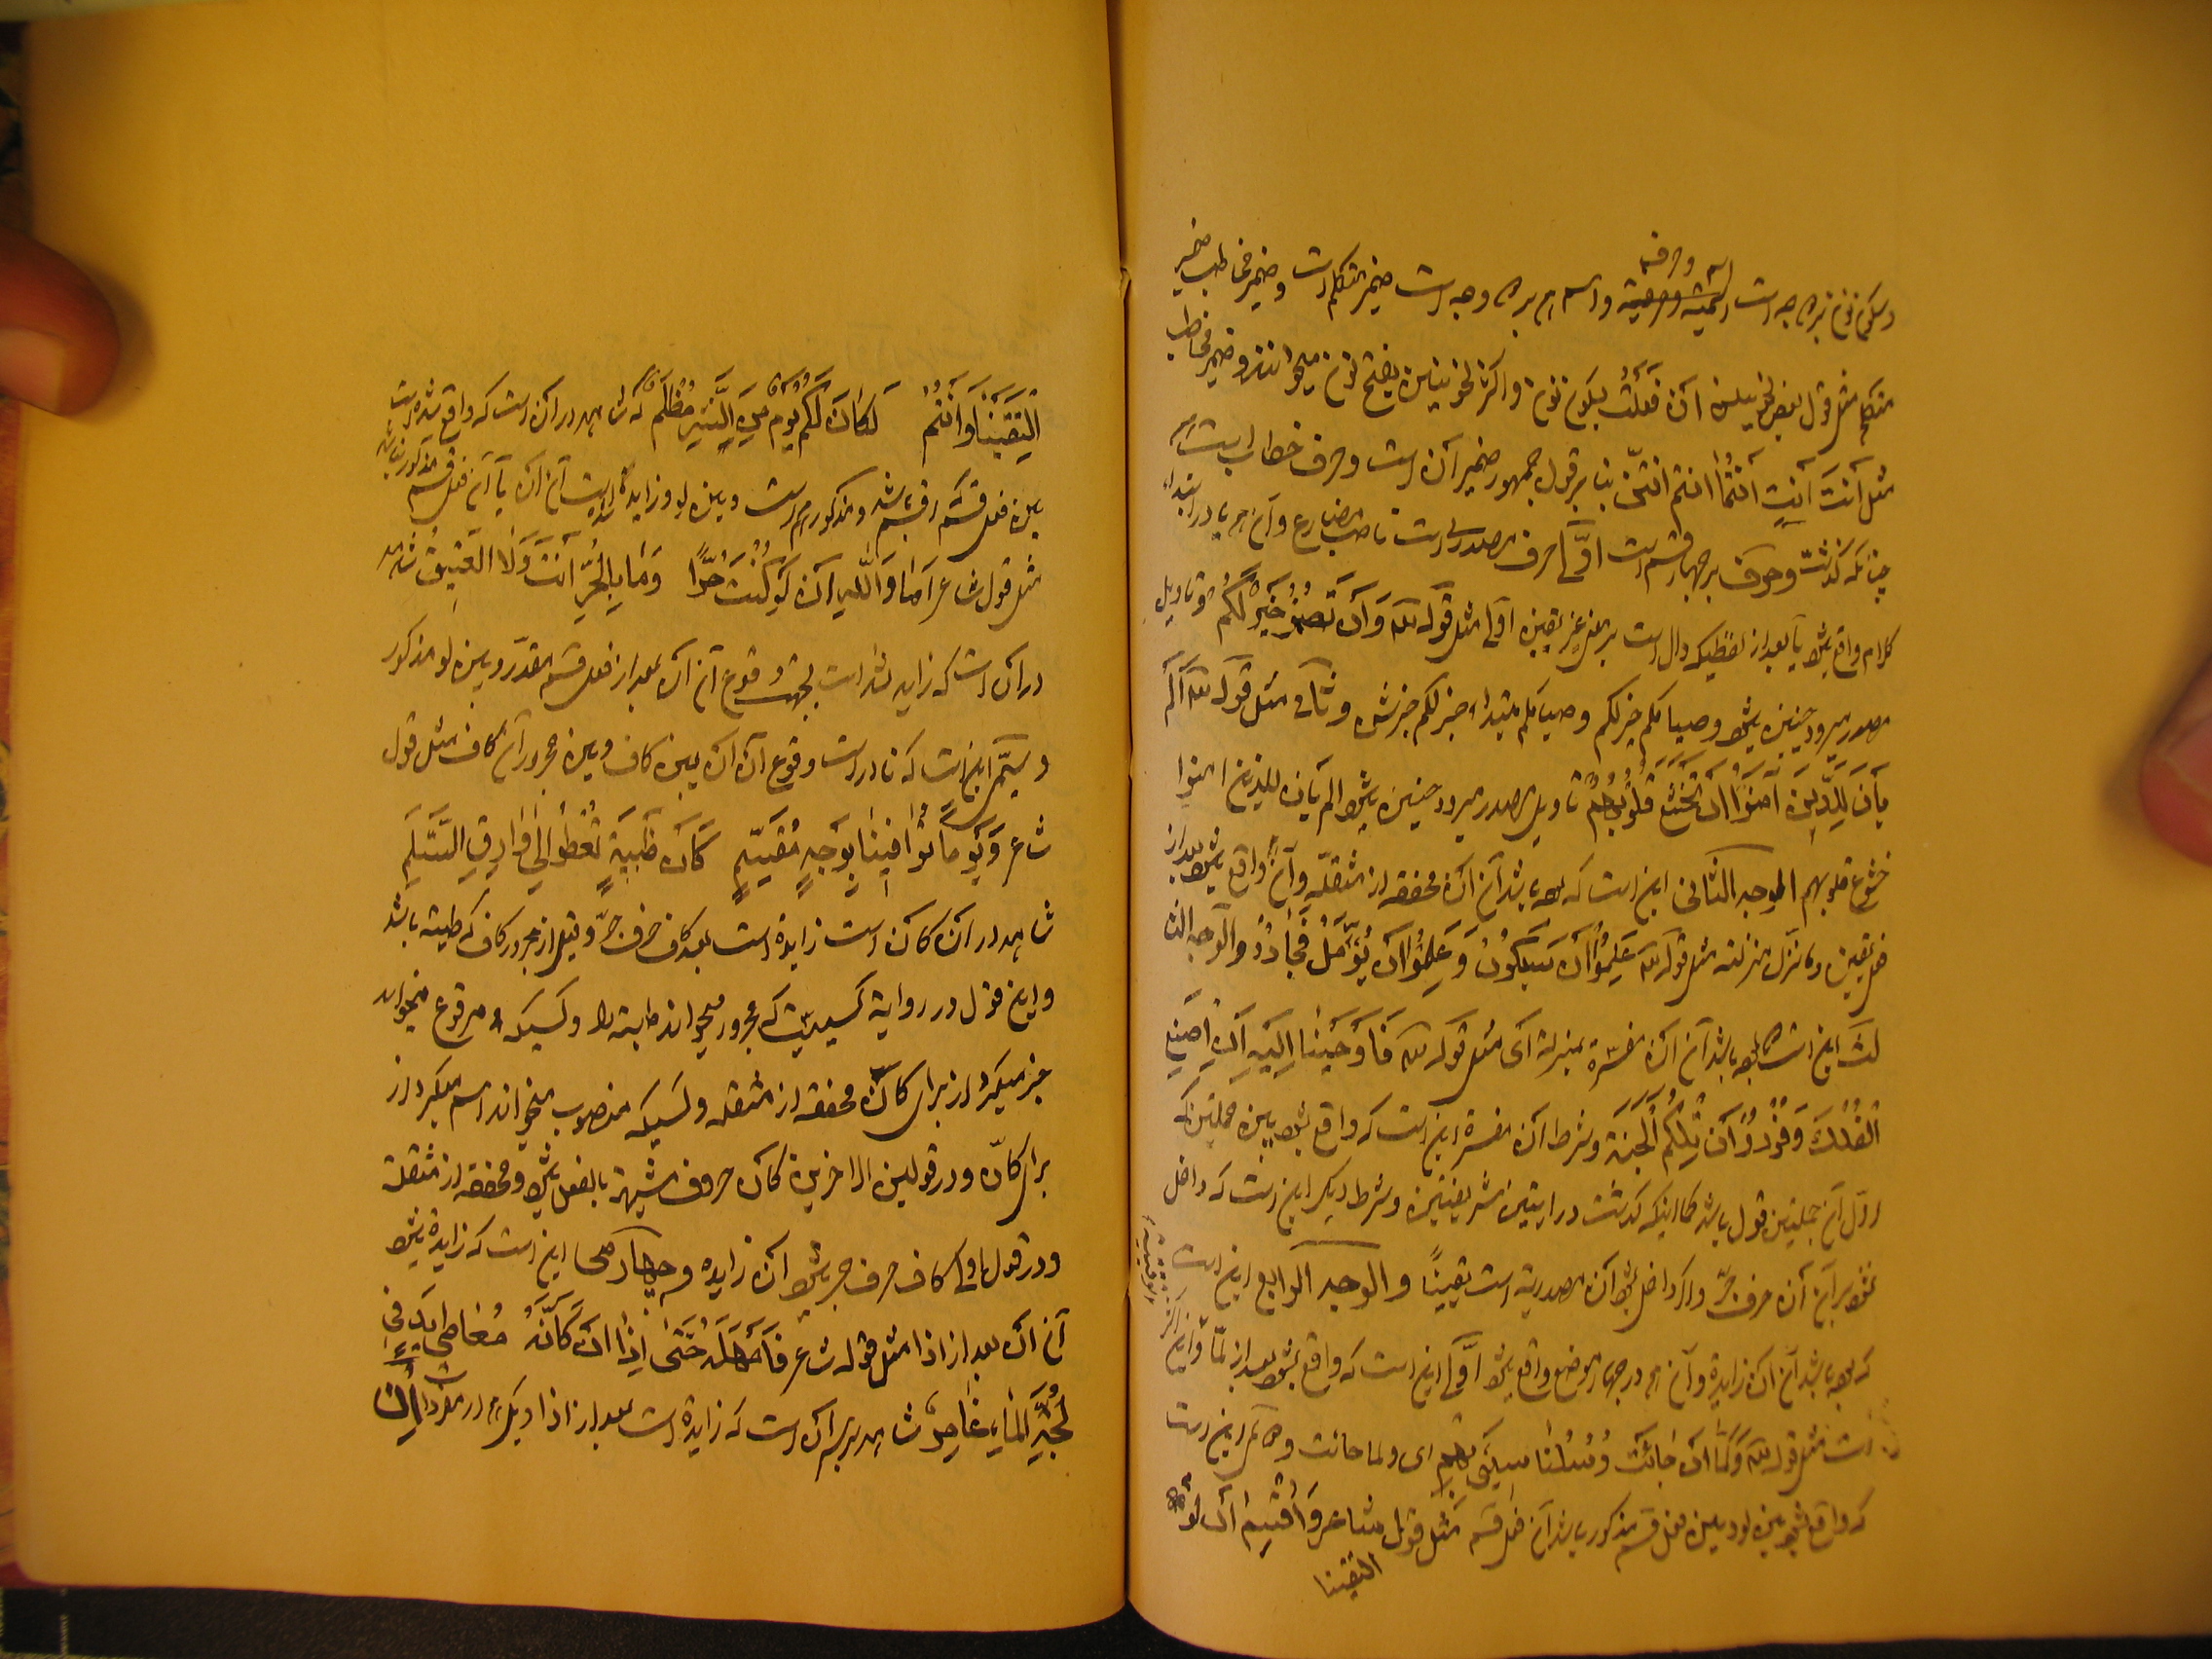 وسکون نون بر دو وجه است اسمیّة وحرفیة واسم هم بر دو وجه است ضمیر متکلم است وضمیر مخاطب ضمیر
متکلم مثل قول بعض نحویین أن فَعَلْتُ بسکون نون واکثر نحویین بفتح نون میخوانند وضمیر مخاطب
مثل أنتَ أنتِ أنتُما انتم انتنّ بنا بر قول جمهور ضمیر أن است وحرف خطاب است
چنانکه گذشت وحرف بر چهار قسم است اوّل حرف مصدری است ناصب مضارع وآن هم یا در ابتداء
کلام واقع میشود یا بعد از لفظیکه دال است بر معنی غیر یقین اول مثل قوله تعالی وَأَنْ تَصُومُوا خَیْرٌ لَکُمْ وتاویل
مصدر میرود چنین میشود وصیامکم خیر لکم وصیامکم مبتداء خیر لکم خبرش وثانی مثل قوله تعالی أَلَمْ
یَأْنِ لِلَّذِینَ آمَنُوا أَنْ تَخْشَعَ قُلُوبُهُمْ تاویل مصدر میرود چنین میشود الم یان للذین امنوا
خشوع قلوبهم الوجه الثانی این است که بوده باشد آن أن مخففه از مثقلّه وآن واقع میشود بعد از
فعل یقین وما نزّل منزلته مثل قوله تعالی عَلِمَ أَنْ سَیَکُونُ وَعَلِمُوا أَنْ یُؤَمَّلُ فَجَادُوا والوجه الثا
لث این است که بوده باشد آن أن مفسّرة بمنزلة أی مثل قوله تعالی فَأَوْحَیْنَا إِلَیْهِ أَنِ اصْنَعِ
الْفُلْكَ وَنُودُوا أَنْ تِلْکُمُ الْجَنَّة وشرط أن مفسرة این است که واقع میشود بین جملتین که
اوّل آن جملتین قول باشد کما اینکه گذشت در ایتین شریفتین وشرط دیگر این است که داخل
نشود بر آن أن حرف جرّ واگر داخل شود أن مصدریة است یقیناً والوجه الرابع این است
که بوده باشد آن أن زایدة وآن هم در چهار موضع واقع میشود اوّل این است که واقع میشود بعد از لمّا واین
است مثل قوله تعالی وَلَمَّا أَنْ جَائَتْ رُسُلُنَا سِیئَ بِهِمْ ای ولما جائت ودیگر این است
که واقع میشود بین لو وبین فعل قسم مذکور باشد آن فعل قسم مثل قول شاعر وَأُقْسِمُ أَنْ لَوِ
التقینا
الْتَقَیْنَا وَأَنْتُمُ لَکَانَ لَکُمْ یَوْمٌ مِنَ الشَّرِّ مُظْلِمُ که شاهد در آن است که واقع شده است
بین فعل قسم اقسم باشد ومذکور هم است وبین لو وزایدة است آن أن یا آن فعل قسم مذکور نباشد
مثل قول شاعر أَمَا وَاللهِ أَنْ لَوْ کُنْتَ حُرّاً وَمَا بِالْحُرِّ أَنْتَ وَلَا الْعَتِیقُ شاهد
در آن است که زاید شده است بجهة وقوع آن أن بعد از فعل قسم مقدّر وبین لو مذکور
وسیّم این است که نادر است وقوع آن أن بین کاف وبین مجرور آن کاف مثل قول
شاعر وَیَوْماً تُوَافِینَا بِوَجْهٍ مُقَسَّمٍ کَأَنْ ظَبْیَةٍ تَعْطُو إِلَی وَارِقِ السَّلَمِ
شاهد در أن کأن است زایدة است بعد کاف حرف جرّ وقبل از مجرور کاف که ظبیة باشد
واین قول در روایة کسی است که مجرور میخواند ظبیة را وکسیکه مرفوع میخواند
خبر میگیرد از برای کأنْ مخففه از مثقله وکسیکه منصوب میخواند اسم میگیرد از
برای کأنّ ودر قولین الاخرین کأن حروف مشبهة بالفعل میشود ومخففه از مثقلة
ودر قول اول کاف حرف جر میشود أن زایده وچهارمی این است که زایدة میشود
آن أن بعد از اذا مثل قوله شاعر فَأَمْهَلَهُ حَتَّی إِذَا أَنْ کَأَنَّهُ مُعَاطِی یَدٍ فِی
لُجَّةِ الْمَاءِ غَامِرُ شاهد بر سر أن است که زایدة است بعد از اذا